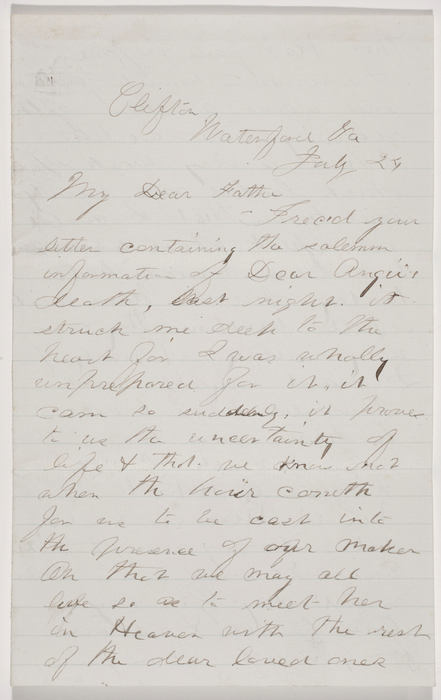 Clifton
Waterford Va
July 24
My Dear Father
I rec'd your
letter containing the solemn
information of Dear Angie's
death, last night. it
struck me deep to the
heart for I was wholly
unprepared for it, it
cam so suddenly, it proves
to us the uncertainty of
life & that we know not
when the hour cometh
for us to be cast into
the presence of our Maker
Oh that we may all
live so as to meet her
in Heaven with the rest
of the dear loved ones